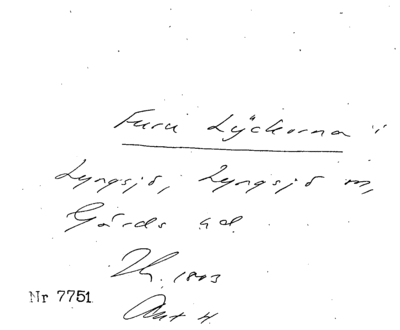 Furu Lyckorna i
Lyngsjö, Lyngsjö m,
Gärds hd
1803
Nr 7751
Akt 4.